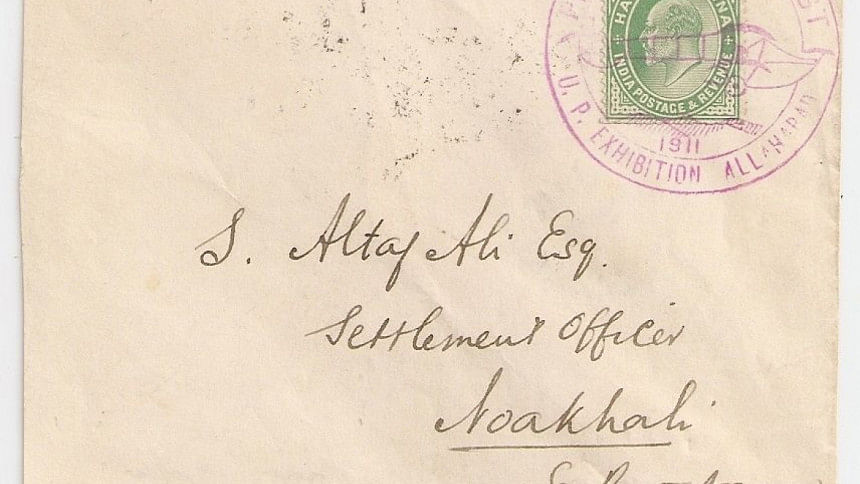 HA NNA
INDIA POSTAGE & REVENUE
ST
1911
U. P. EXHIBITION ALLAHABAD
S. Altaf Ali Esq.
Settlement Officer
Noakhali